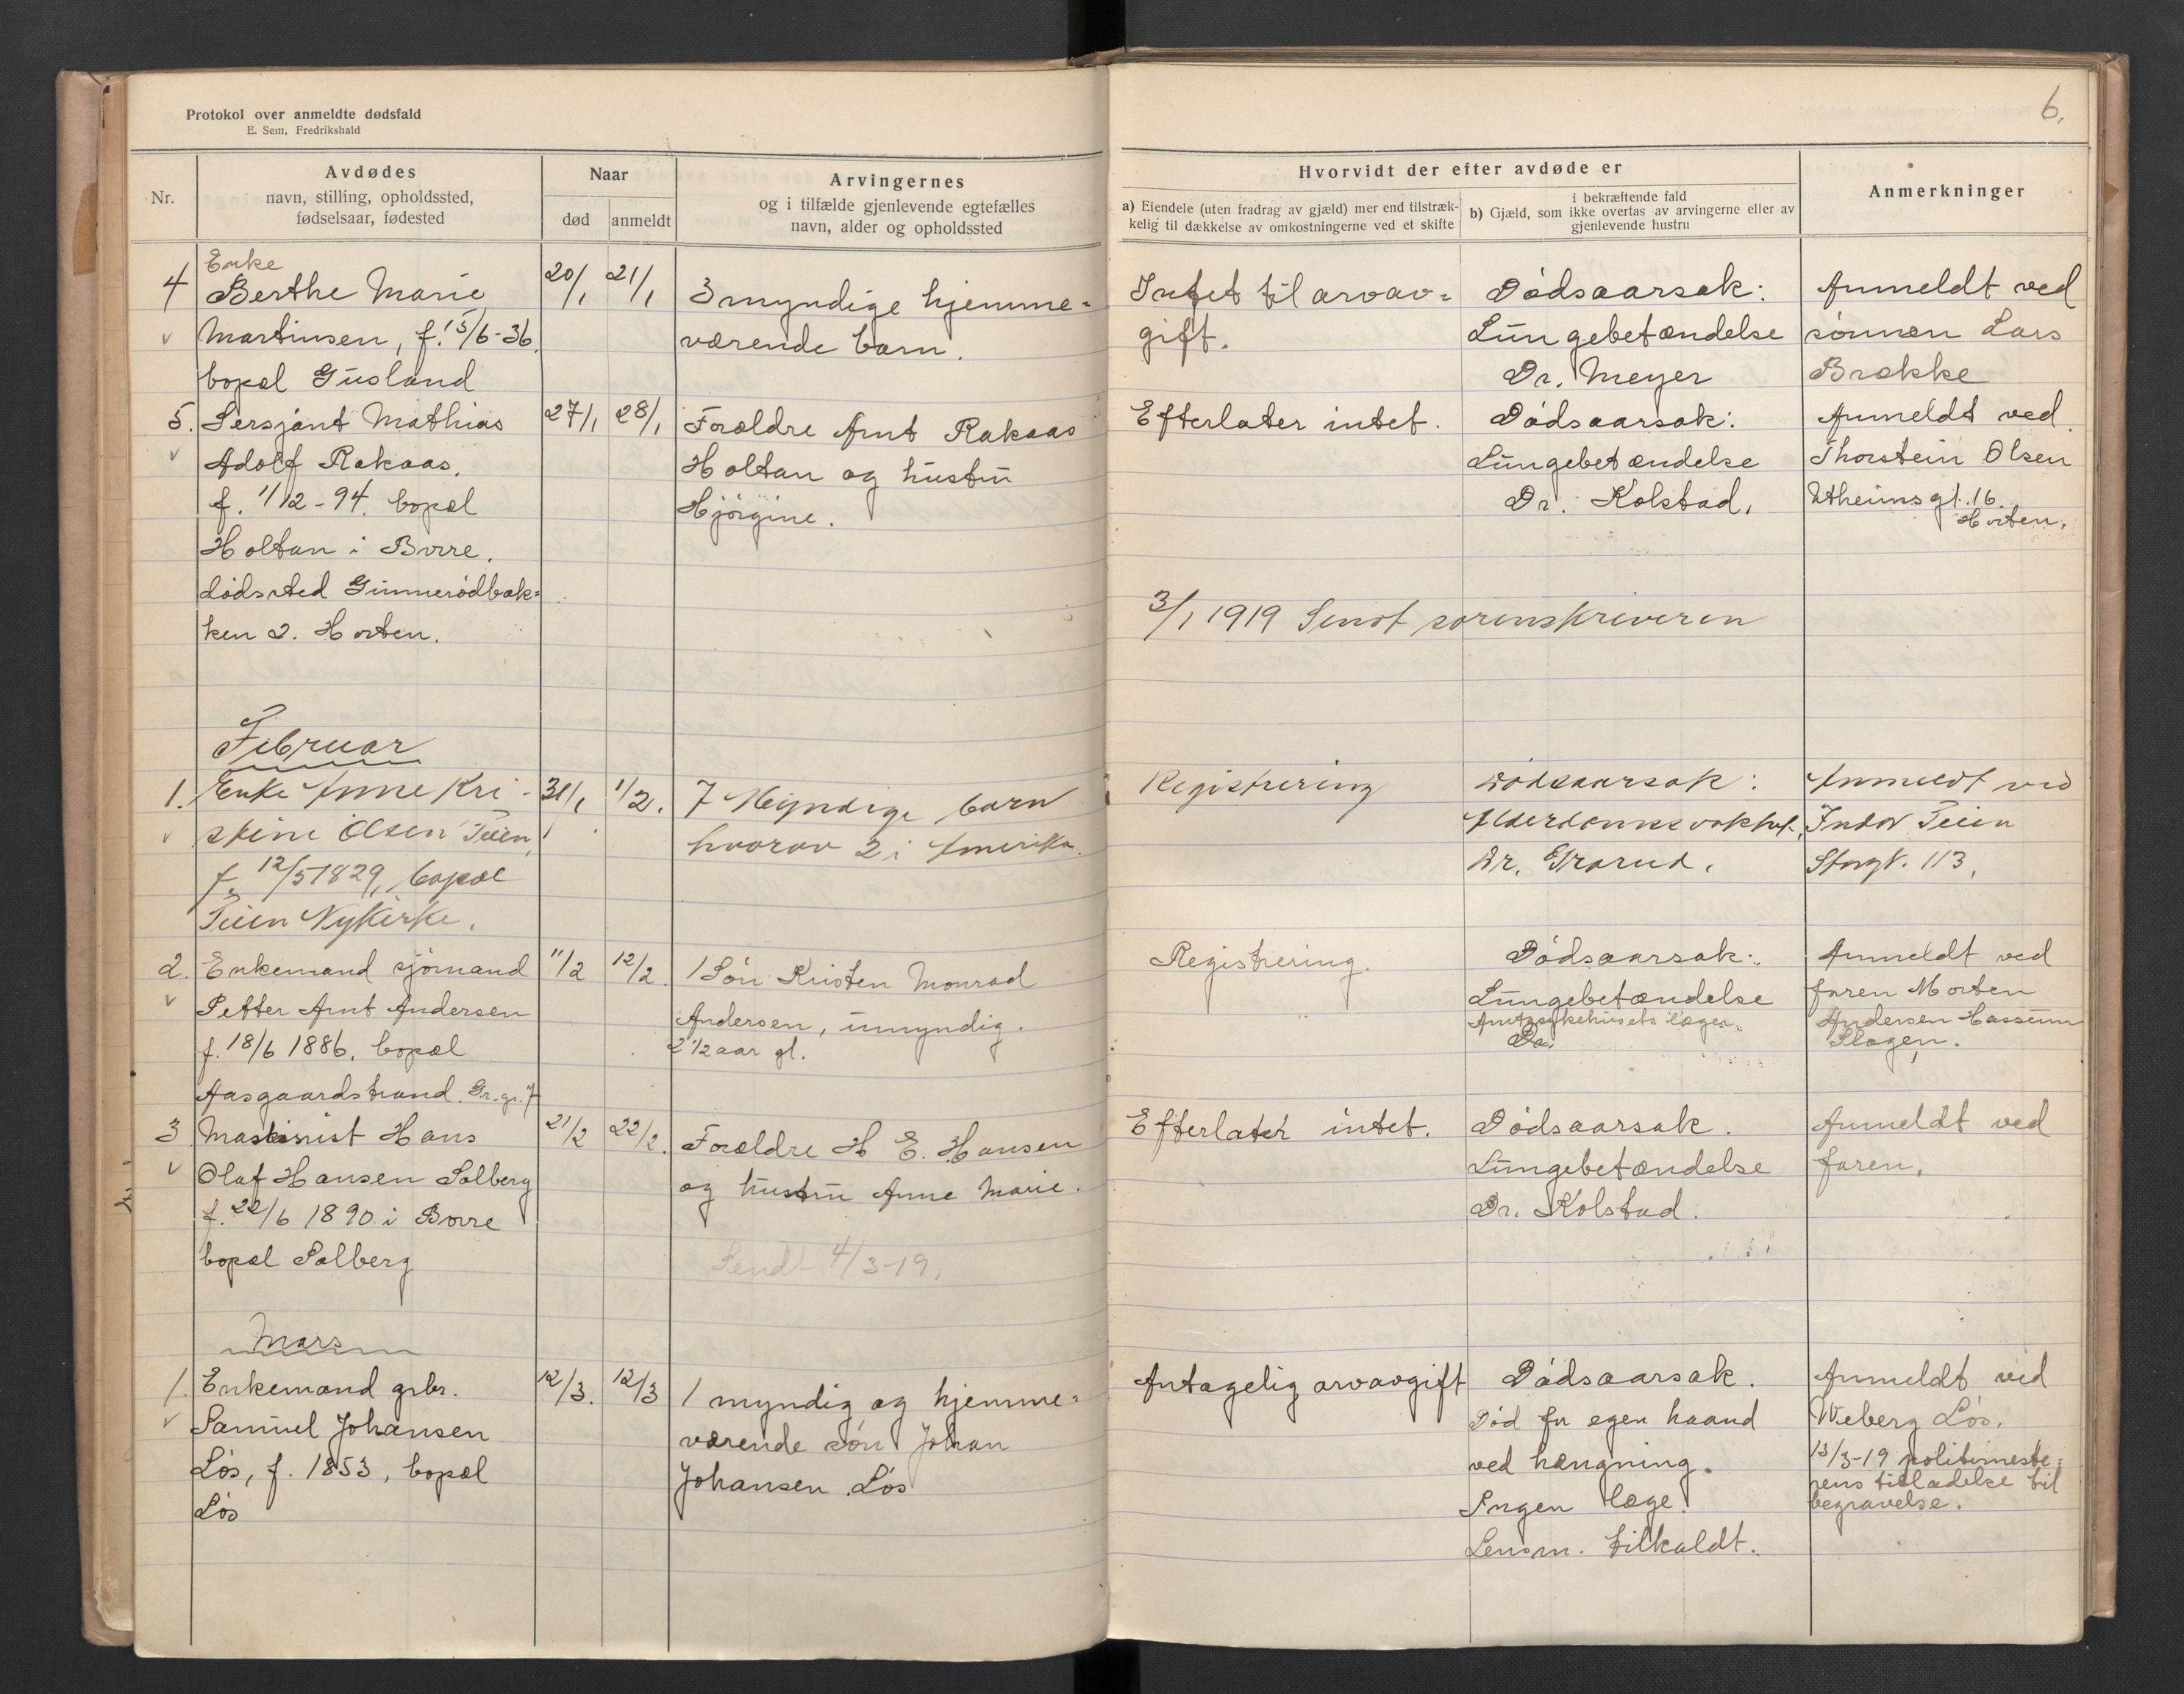 Protokol over anmeldte dødsfald
E. Sem, Fredrikshald
Nr.
Avdødes
navn, stilling, opholdssted,
fødselsaar, fødested
Naar
død
anmeldt
Arvingernes
og i tilfælde gjenlevende egtefælles
navn, alder og opholdssted
4
Enke
Berthe Marie
Martinsen, f. 15/6-36.
bopæl Gusland
20/1
21/1
3 myndige hjemme=
værende barn.
5.
Sersjant Mathias
Adolf Rakaas.
f. 1/12-94. bopæl
Holtan i Borre.
dødssted Gunnerødbak=
ken 2. Horten.
27/1
28/1
Forældre Arnt Rakaas
Holtan og hustru
Hjørgine.
Februar
1.
Enke Anne Kri-
stine Olsen Teien,
f. 12/5 1829, bopæl
Teien Nykirke.
31/1
1/2.
7 Myndige barn
hvorav 2 i Amerika.
2.
Enkemand sjømand
Petter Arnt Andersen
f. 18/6 1886. bopæl
Aasgaardstrand. Gr.-gr. 7
11/2
12/2.
1 Søn Kristen Monrad
Andersen, umyndig.
2 1/2 aar gl.
3
Maskinist Hans
Olaf Hansen Solberg
f. 22/6 1890 i Borre
bopæl Solberg
21/2
22/2.
Forældre H E. Hansen
og hustru Anne Marie.
Sendt 4/3-19.
Mars
1.
Enkemand grbr.
Samuel Johansen
Løs, f. 1853, bopæl
Løs
12/3.
12/3
1 myndig og hjemme=
værende søn Johan
Johansen Løs
6.
Hvorvidt der efter avdøde er
a) Eiendele (uten fradrag av gjæld) mer end tilstræk-
kelig til dækkelse av omkostningerne ved et skifte
i bekræftende fald
b) Gjæld, som ikke overtas av arvingerne eller av
gjenlevende hustru
Anmerkninger
Intet til arvav=
gift.
Dødsaarsak:
Lungebetændelse
Dr. Meyer
Anmeldt ved
sønnen Lars
Brække
Efterlater intet.
Dødsaarsak:
Lungebetændelse
Dr. Kolstad.
Anmeldt ved
Thorstein Olsen
gt. 16.
Horten.
3/1 1919 Sendt sorenskriveren
Registrering
Dødsaarsak:
Dr.
Anmeldt ved
Teien
Storgt. 113.
Registrering.
Dødsaarsak:
Lungebetændelse
Amtssykehusets læger
Anmeldt ved
faren Morten
Andersen Hassum
Slagen.
Efterlater intet.
Dødsaarsak.
Lungebetændelse
Dr. Kolstad.
Anmeldt ved
faren.
Antagelig arvavgift
Dødsaarsak.
Død for egen haand
ved hængning.
Ingen læge.
Lensm. tilkaldt.
Anmeldt ved
Weberg Løs.
13/3-19 politimeste=
rens tilladelse til
begravelse.